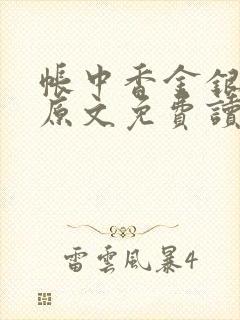 帳中香金銀
原文免費讀
雷雲風暴4